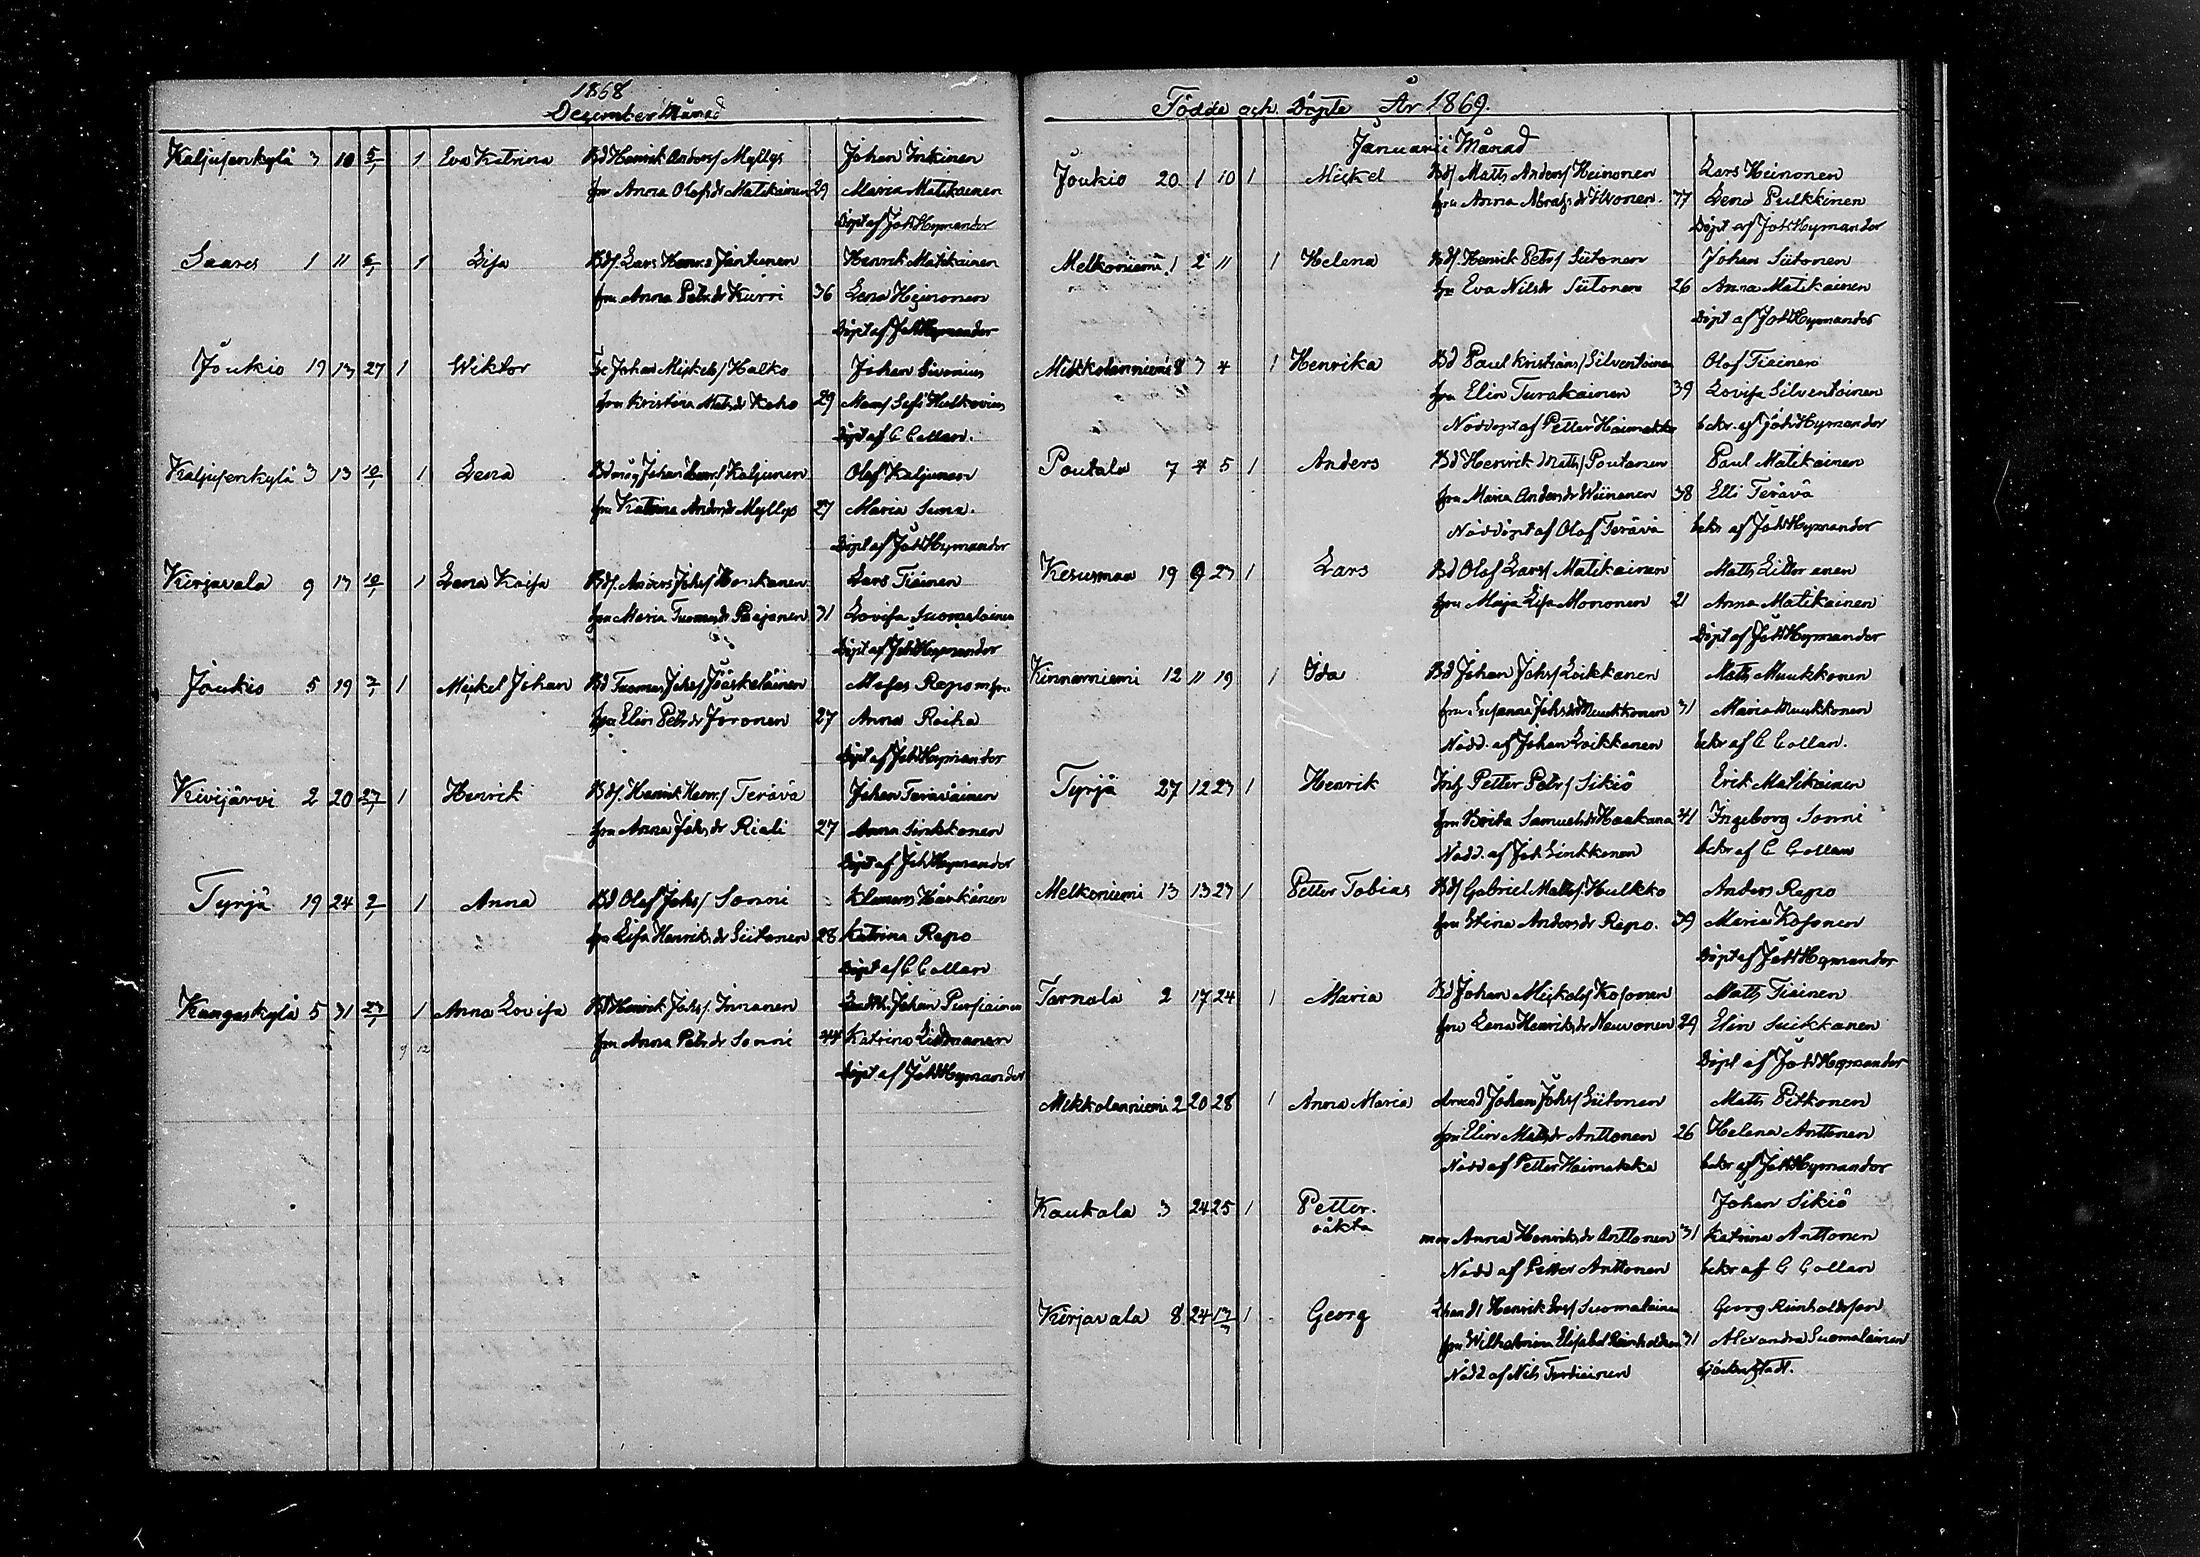 1868
December Månad
Kaljusenkylä 3 10 5/1 1 Eva Katrina Bd Henrik Anders/ Myllys Johan Inkinen
fru Anna Olofsdr Matikainen 29 Maria Matikainen
Döpt af Joh Hymander
Saares 1 11 6/1 1 Lisa Bdf. Lars Henrs Jantunen Henrik Matikainen
fru Anna Petrdr Kurri 36 Lena Heinonen
Döpt af Joh Hymander
Joukio 19 13 27 1 Wiktor Johan Mickels/ Halko Johan Siwonius
fru Kristina Matsdr Koho 29
Döpt af C Collan.
Kaljusenkylä 3 13 10/1 1 Lena Johan Henr/ Kaljunen Olof Kaljunen
fru Katrina Andersdr Myllys 27 Maria Suna.
Döpt af Joh Hymander
Kirjavala 9 17 10/1 1 Lena Kaisa Bdf. Anders Johs/ Honkanen Lars Tiainen
fru Maria Tuomasdr Paajanen 31 Lovisa Suomalainen
Döpt af Joh Hymander
Joukio 5 19 7/1 1 Mickel Johan Bd Tuomas Johs/ Jääskeläinen Mofes Repo m fru
fru Elin Petrdr Joronen 27 Anna Roiha
Döpt af Joh Hymander
Kivijärvi 2 20 27/1 1 Henrik Bdf. Henrik Henr/ Terävä Johan Teräväinen
fru Anna Johsdr Riali 27 Anna Sinkkonen
Döpt af Joh Hymander
Tyrjä 19 24 2/1 1 Anna Bd Olof Johs/ Sonni Klemens Härkönen
fru Lisa Henriksdr Siitonen 28 Katrina Repo
Döpt af C Collan
Kangaskylä 5 31 23/1 1 Anna Lovisa Bd Henrik Johs/ Innanen Johan Pursiainen
fru Anna Petrdr Sonni 44 Katrina Littmanen
9 12
Döpt af Joh Hymander
Födde och Döpte År 1869.
Januarii Månad
Joukio 20 1 10 1 Mickel Bdf Matts Anders/ Heinonen Lars Heinonen
fru Anna Abrahsdr Ikonen 37 Lena Pulkkinen
Döpt af Joh Hymander
Melkoniemi 1 2 11 1 Helena Bdf. Henrik Petr/ Siitonen Johan Siitonen
fru Eva Nilsdr Siitonen 26 Anna Matikainen
Döpt af Joh Hymander
Mikkolanniemi 8 3 4 1 Henrika Bd Paul Kristians/ Silventoinen Olof Tiainen
fru Elin Turakainen 39 Lovisa Silventoinen
Nöddöpt af Petter Haimakka bekr. af Joh Hymander
Poutala 7 4 5 1 Anders Bd Henrik Matts/ Poutanen Paul Matikainen
fru Maria Andersdr Wiinanen 38 Elli Terävä
Nöddöpt af Olof Terävä bekr af Joh Hymander
Kesusmaa 19 9 23 1 Lars Bd Olof Lars/ Matikainen Matts Littmanen
fru Maja Lisa Mononen 21 Anna Matikainen
Döpt af Joh Hymander
Kinnarniemi 12 11 19 1 Ida Bd Johan Johs/ Loikkanen Matts Muukkonen
fru Susanna Johsdr Muukkonen 31 Maria Muukkonen
Nödd. af Johan Loikkanen bekr af C Collan.
Tyrjä 27 12 23 1 Henrik Inh Petter Petr/ Sikiö Erik Matikainen
fru Brita Samuelsdr Haakana 41 Ingeborg Sonni
Nödd. af Joh Sinkkonen bekr af C Collan
Melkoniemi 13 13 23 1 Petter Tobias Bdf Gabriel Matts/ Hulkko Anders Repo
fru Stina Andersdr Repo. 39 Maria Kosonen
Döpt af Joh Hymander
Tarnala 2 17 24 1 Maria Bd Johan Mickels/ Kosonen Matts Tiainen
fru Lena Henriksdr Neuvonen 29 Elin Suikkanen
Döpt af Joh Hymander
Mikkolanniemi 2 20 28 1 Anna Maria Johan Johs/ Siitonen Matts Pitkonen
fru Elin Mattsdr Anttonen 26 Helena Anttonen
Nödd af Petter Haimakka bekr af Joh Hymander
Kaukola 3 24 25 1 Petter. Johan Sikiö
oäkta
mor Anna Henriksdr Anttonen 31 Katrina Anttonen
Nödd af Petter Anttonen bekr af C Collan
Kirjavala 8 24 17/3 1 Georg Henrik Suomalainen Georg Reinholdsson
fru Wilhelmina Elisabet Reinholdson 31 Alexandra Suomalainen
Nödd af Nils Turtiainen